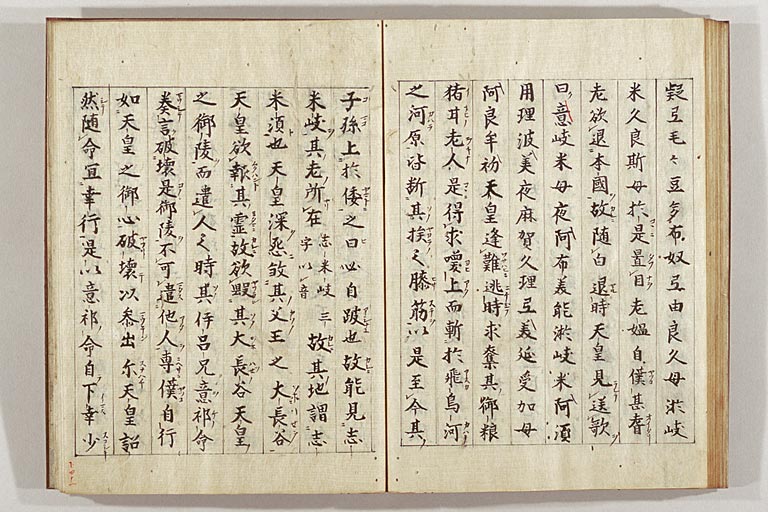 疑互毛々豆多布奴互由良久母淤岐
米久良斯母於是置目老媼白僕甚耆
老欲退本國故随白退時天皇見送歌
曰意岐米母夜阿布美能淤岐米阿須
用理波美夜麻賀久理互美延受加母
阿良牟初天皇逢難逃時求奪其御粮
猪耳老人是得求喚上而斬於飛鳥河
之河原皆断其族之膝筋以是至今其
子孫上於倭之日必自跛也故能見志
米岐其老所在志米岐三字以音故其地謂志
米須也天皇深怨殺其父王之大長谷
天皇欲報其霊故欲毀其大長谷天皇
之御陵而遣人之時其伊呂兄意祁命
奏言破壊是御陵不可遣他人専僕自行
如天皇之御心破壊以参出尓天皇詔
然随命宜幸行是以意祁命自下幸少